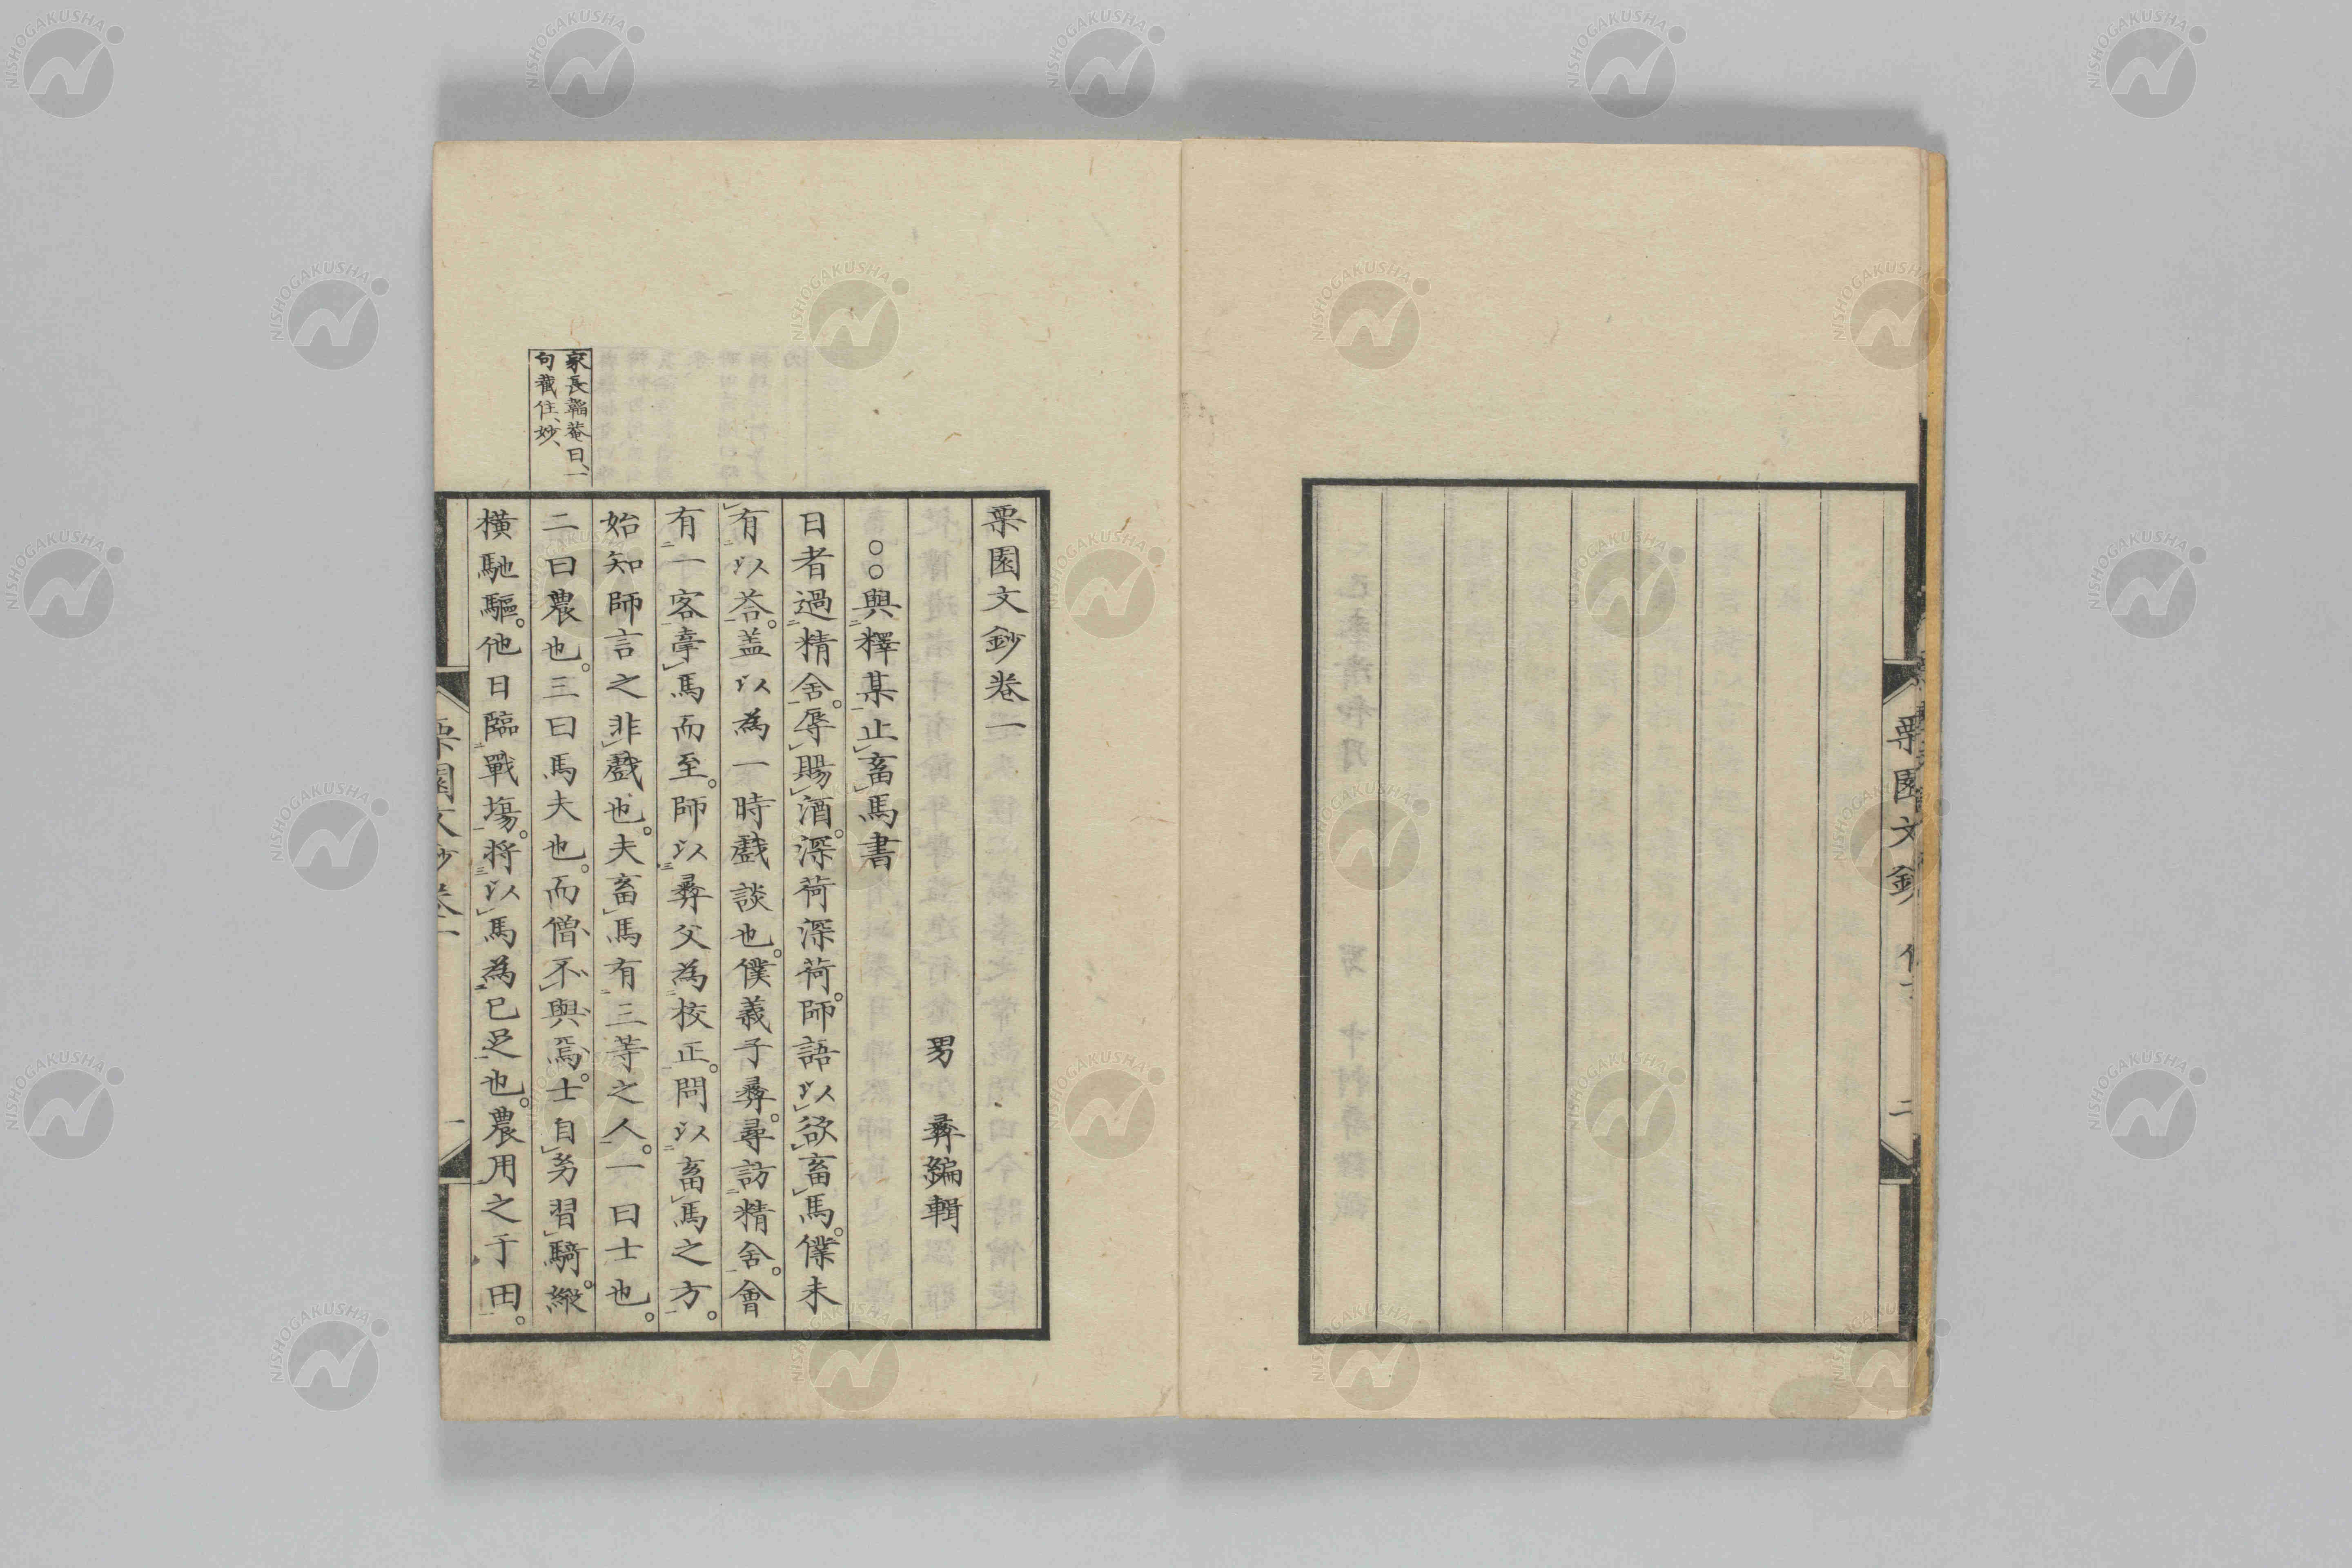 栗園文鈔
二
栗園文鈔卷一
男　彝編輯
○○與釋某止畜馬書
日者過精舍。辱賜酒。深荷深荷。師語以欲畜馬。僕未
有以荅。盖以為一時戲談也。僕義子彝。尋訪精舍。會
有一客牽馬而至。師以彝父為校正。問以畜馬之方。
始知師言之非戲也。夫畜馬有三等之人。一曰士也。
二曰農也。三曰馬夫也。而僧不與焉。士自努習騎。縱
橫馳驅。他日臨戰塲。将以馬為已足也。農用之于田。
家長韜菴曰、一
句截住、妙、
栗園文鈔卷一
一
NISHOGAKUSHA